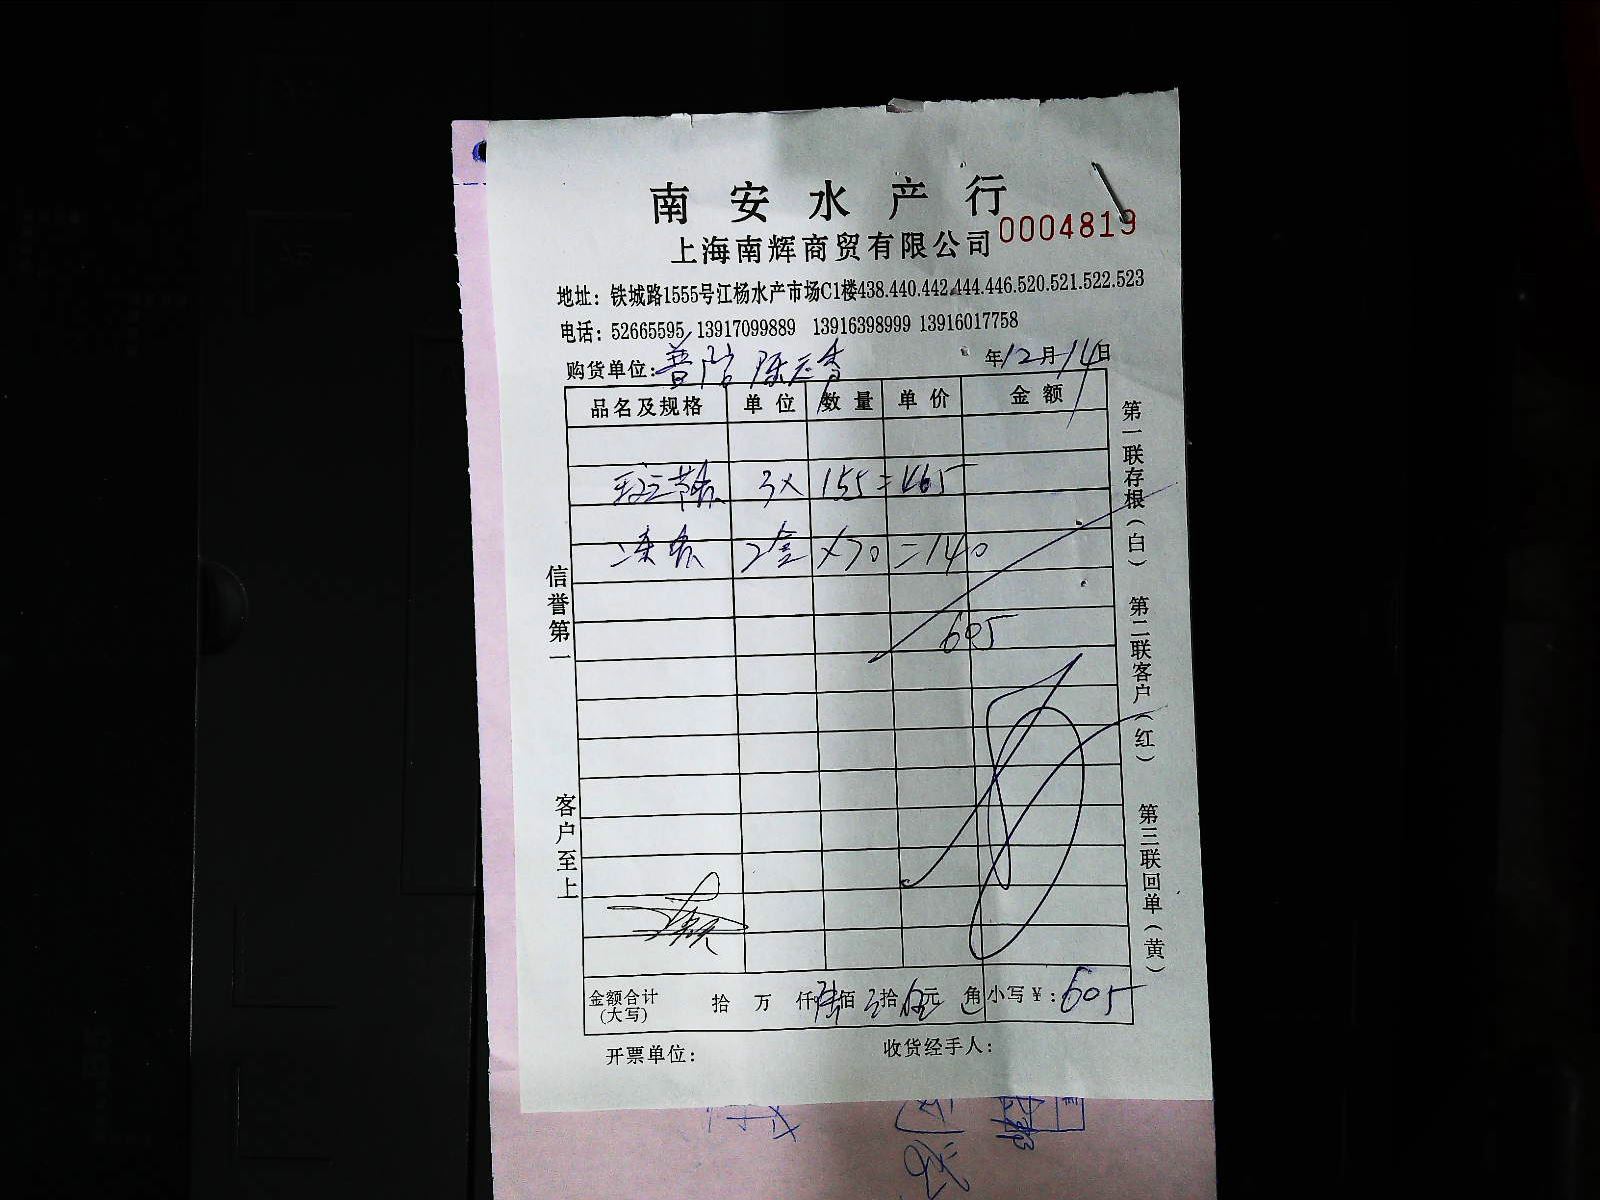 南安水产行
上海南辉商贸有限公司 0004819
地址：铁城路1555号江杨水产市场C1楼438.440.442.444.446.520.521.522.523
电话：52665595 13917099889 13916398999 13916017758
购货单位：普陀 年12月14日
品名及规格 单位 数量 单价 金额
3X 155=465
2盒 X70=140
605
金额合计(大写) 拾 万 仟 陆佰 拾 伍元 角 小写￥：605
开票单位： 收货经手人：
信誉第一
客户至上
第一联存根（白）
第二联客户（红）
第三联回单（黄）